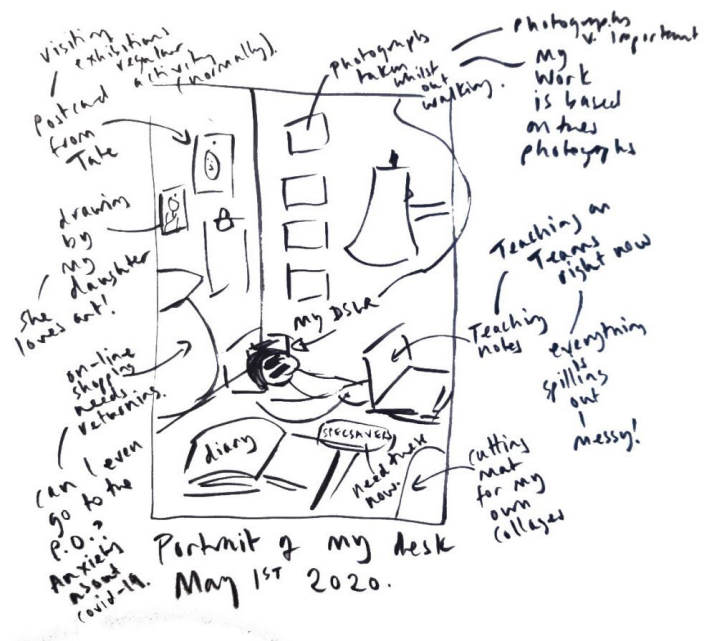 visiting
exhibitions
regular
activity
(normally).
Postcard
from
Tate
drawing
by
my
daughter
she
loves art!
on-line
shopping
needs
returning.
can I even
go to the
P.O.?
Anxiety
about
covid-19.
photographs
taken
whilst
out
walking.
photographs
v. important
My
Work
is based
on these
photographs
my DSLR
Teaching on
Teams
right now
Teaching
notes
everything
is
spilling
out
messy!
diary
SPECSAVERS
need these
now.
cutting
mat
for my
own
collages
Portrait of my desk
May 1ST 2020.